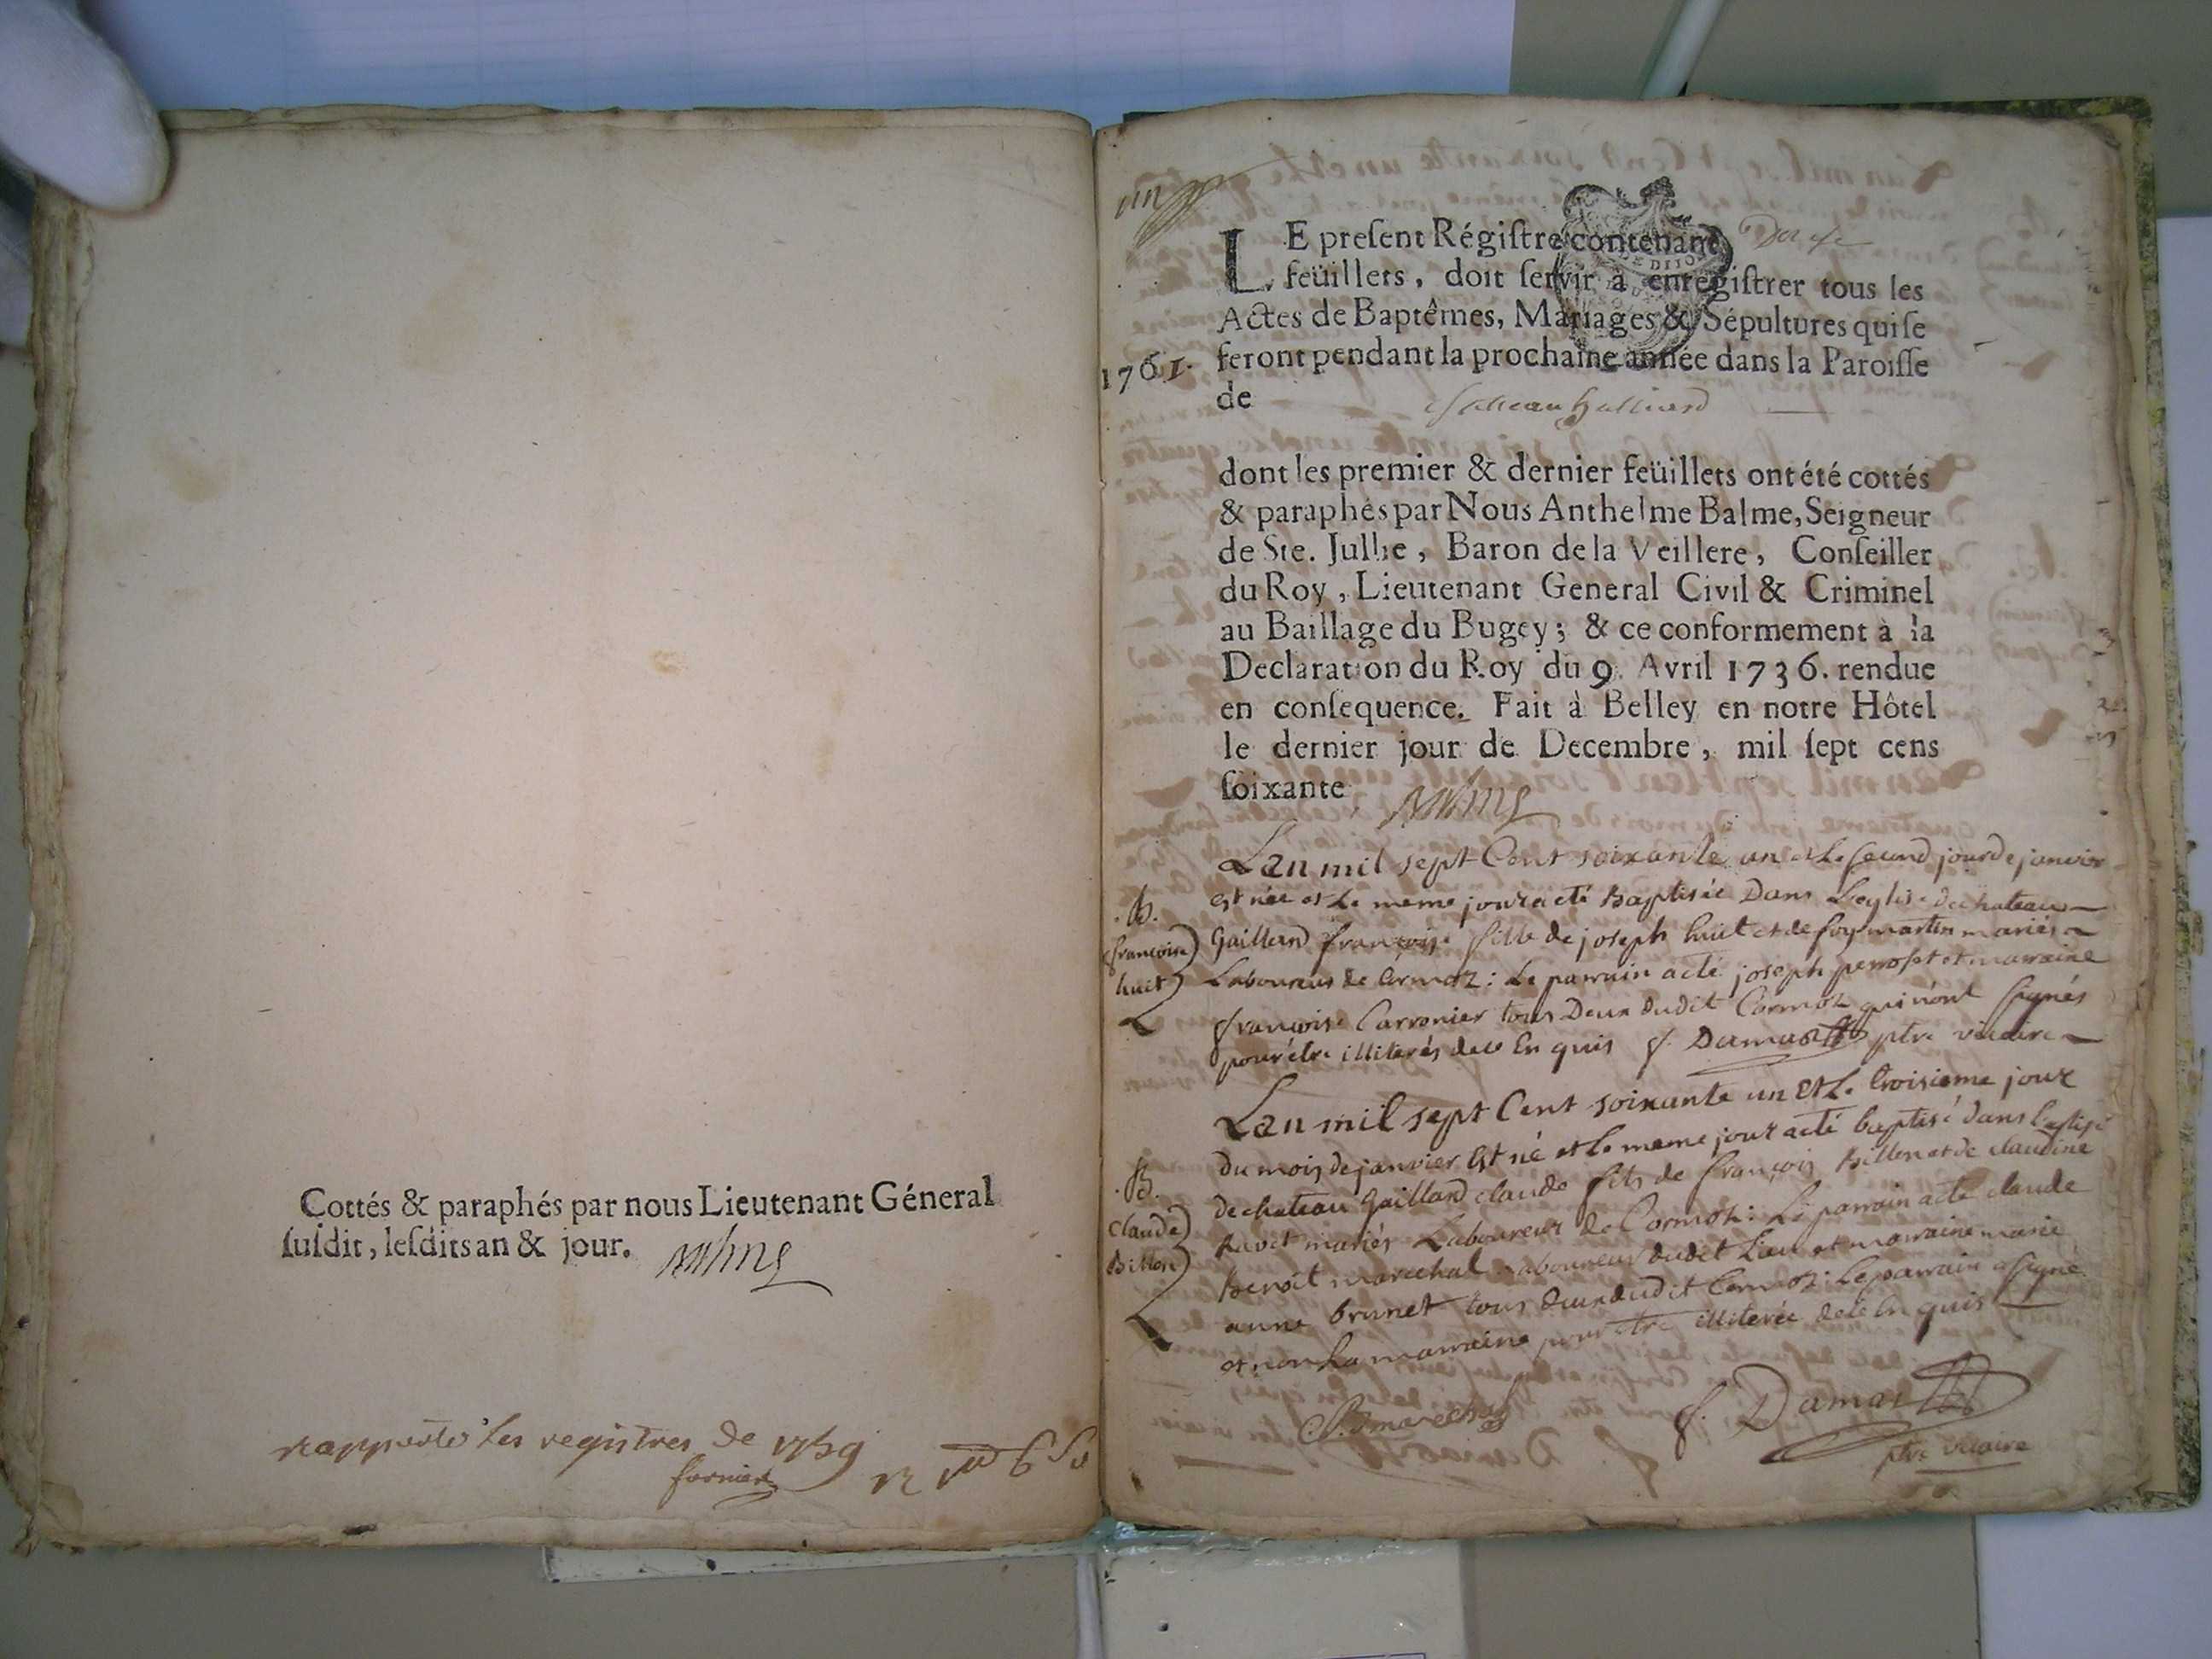 Cottés & paraphés par nous Lieutenant Géneral
ſuſdit, leſdits an & jour.
rapporté les registres de 1759
un
LE preſent Régiſtre contenant Douze
feüillets, doit ſervir à enregiſtrer tous les
Actes de Baptêmes, Mariages & Sépultures qui ſe
1761. feront pendant la prochaine année dans la Paroiſſe
de chateau Galliard
dont les premier & dernier feüillets ont été cottés
& paraphés par Nous Anthelme Balme, Seigneur
de Ste. Jullie, Baron de la Veillere, Conſeiller
du Roy, Lieutenant General Civil & Criminel
au Baillage du Bugey; & ce conformement à la
Declaration du Roy du 9. Avril 1736. rendue
en conſequence. Fait à Belley en notre Hôtel
le dernier jour de Decembre, mil ſept cens
ſoixante
Lan mil sept Cent soixante un et le second jour de janvier
.B. est née et le meme jour a été Baptisée Dans Leglise de chateau
françoise Gaillard françoise fille de joseph huit et de foy martin mariés
huit Laboureurs de Cormoz: Le parrain a été joseph perroset et marraine
françoise Carronier tous Deux dudit Cormoz qui n'ont signés
pour être illiterés de ce Enquis f. Damas ptre vicaire
Lan mil sept Cent soixante un Et Le troisieme jour
du mois de janvier Est né et le meme jour a été baptisé dans l'eglise
.B. de chateau Gaillard claude fils de françois Billon et de claudine
claude Ravet mariés Laboureur de Cormoz: Le parrain a été claude
Billon Benoit marechal Laboureur dudit Lieu et marraine marie
anne brunet tous deux dudit Cormoz: Le parrain a signé
et non La marraine pour etre illiterée de ce Enquis
B marechal f. Damas
ptre vicaire